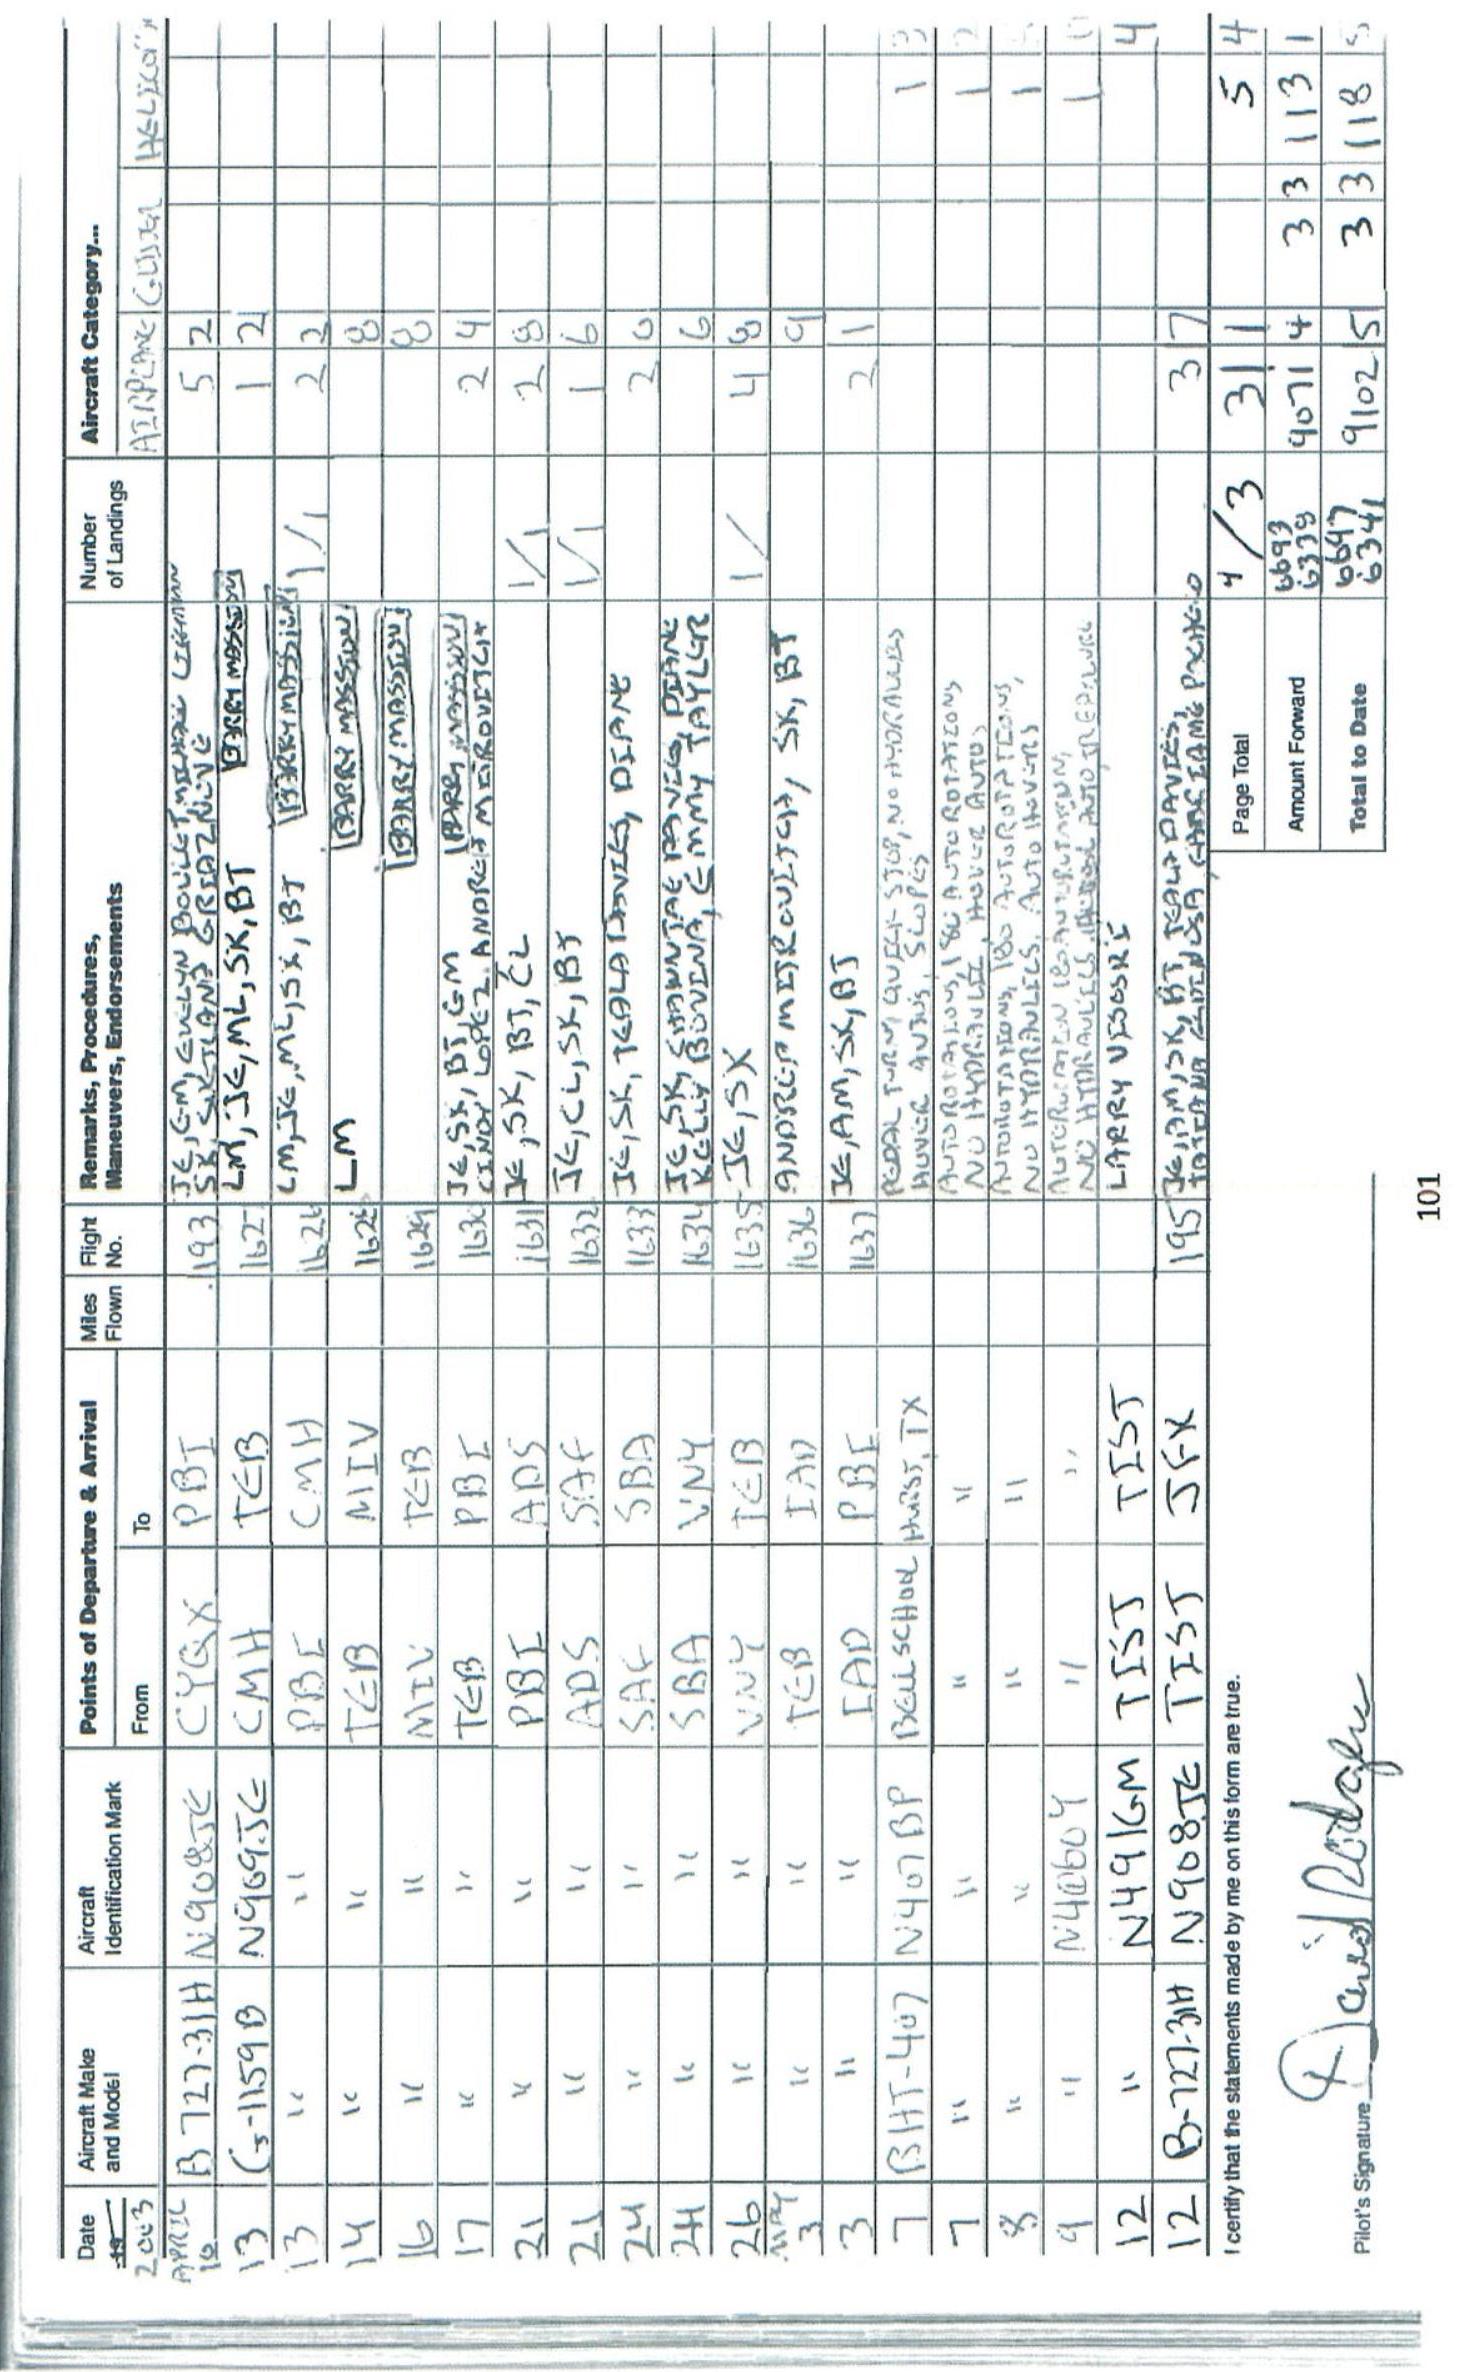 Date 19 2003
Aircraft Make and Model
Aircraft Identification Mark
Points of Departure & Arrival
From
To
Miles Flown
Flight No.
Remarks, Procedures, Maneuvers, Endorsements
Number of Landings
Aircraft Category...
AIRPLANE
HELICOPTER
APRIL B 727-31H N908JE CYQX PBI 193 JE, GM, EVELYN BOULET, 5 2
13 G-1159B N909JE CMH TEB 162 LM, JE, ML, SK, BT BARRY MASSION 1 2
13 " " PBI CMH LM, JE, ML, SK, BT BARRY MASSION 1/1 2 2
14 " " TEB MIV LM BARRY MASSION 8
16 " " MIV TEB 1629 BARRY MASSION 8
17 " " TEB PBI 1630 JE, SK, BT, GM BARRY MASSION 2 4
CINDY LOPEZ, ANDREA MITROVITCH
21 " " PBI ADS 1631 JE, SK, BT, CL 1/1 2 8
21 " " ADS SAF 1632 JE, CL, SK, BT 1/1 1 6
24 " " SAF SBA 1633 JE, SK, TEALA DAVIES, DIANE 2 0
24 " " SBA VNY 1634 JE, SK, CHAUNTAE DAVIES, DIANE 6
KELLY BOVINA, EMMY TAYLOR
26 " " VNY TEB 1635 JE, SK 1/ 4 8
MAY 3 " " TEB IAD 1636 ANDREA MITROVITCH, SK, BT 9
3 " " IAD PBI 1637 JE, AM, SK, BT 2 1
7 BHT-407 N407BP BELL SCHOOL HURST, TX PEDAL TURN, QUICK STOP, NO HYDRAULICS 1 3
HOVER AUTOS, SLOPES
7 " " " " AUTOROTATIONS, 180 AUTOROTATIONS 1 2
NO HYDRAULIC, HOVER AUTOS
8 " " " " AUTOROTATIONS, 180 AUTOROTATIONS, 1
NO HYDRAULICS, AUTO HOVERS
9 " " " AUTOROTATION 180 AUTOROTATION, 1
NO HYDRAULICS
12 " N491GM TIST TIST LARRY VISOSKI 4
12 B-727-31H N908JE TIST JFK 195 JE, AM, SK, BT, TEALA DAVIES, 3 7
I certify that the statements made by me on this form are true.
Page Total 4/3 31 1 5 4
Amount Forward 6693 6338 9071 4 33 3 113 1
Total to Date 6697 6341 9102 5 33 3 118 5
Pilot's Signature David Rodgers
101